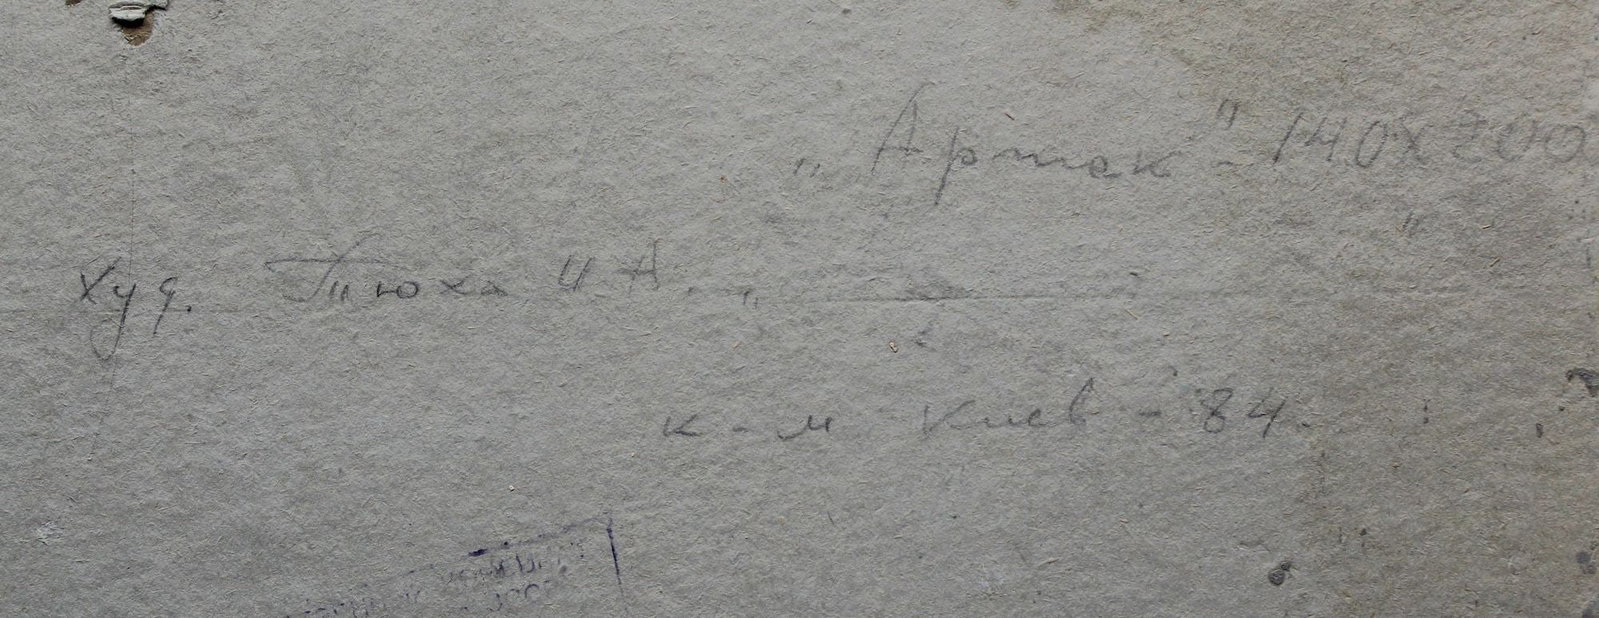 „Артек" - 140х200
худ. Тюха И.А.
к-м Киев - 84.